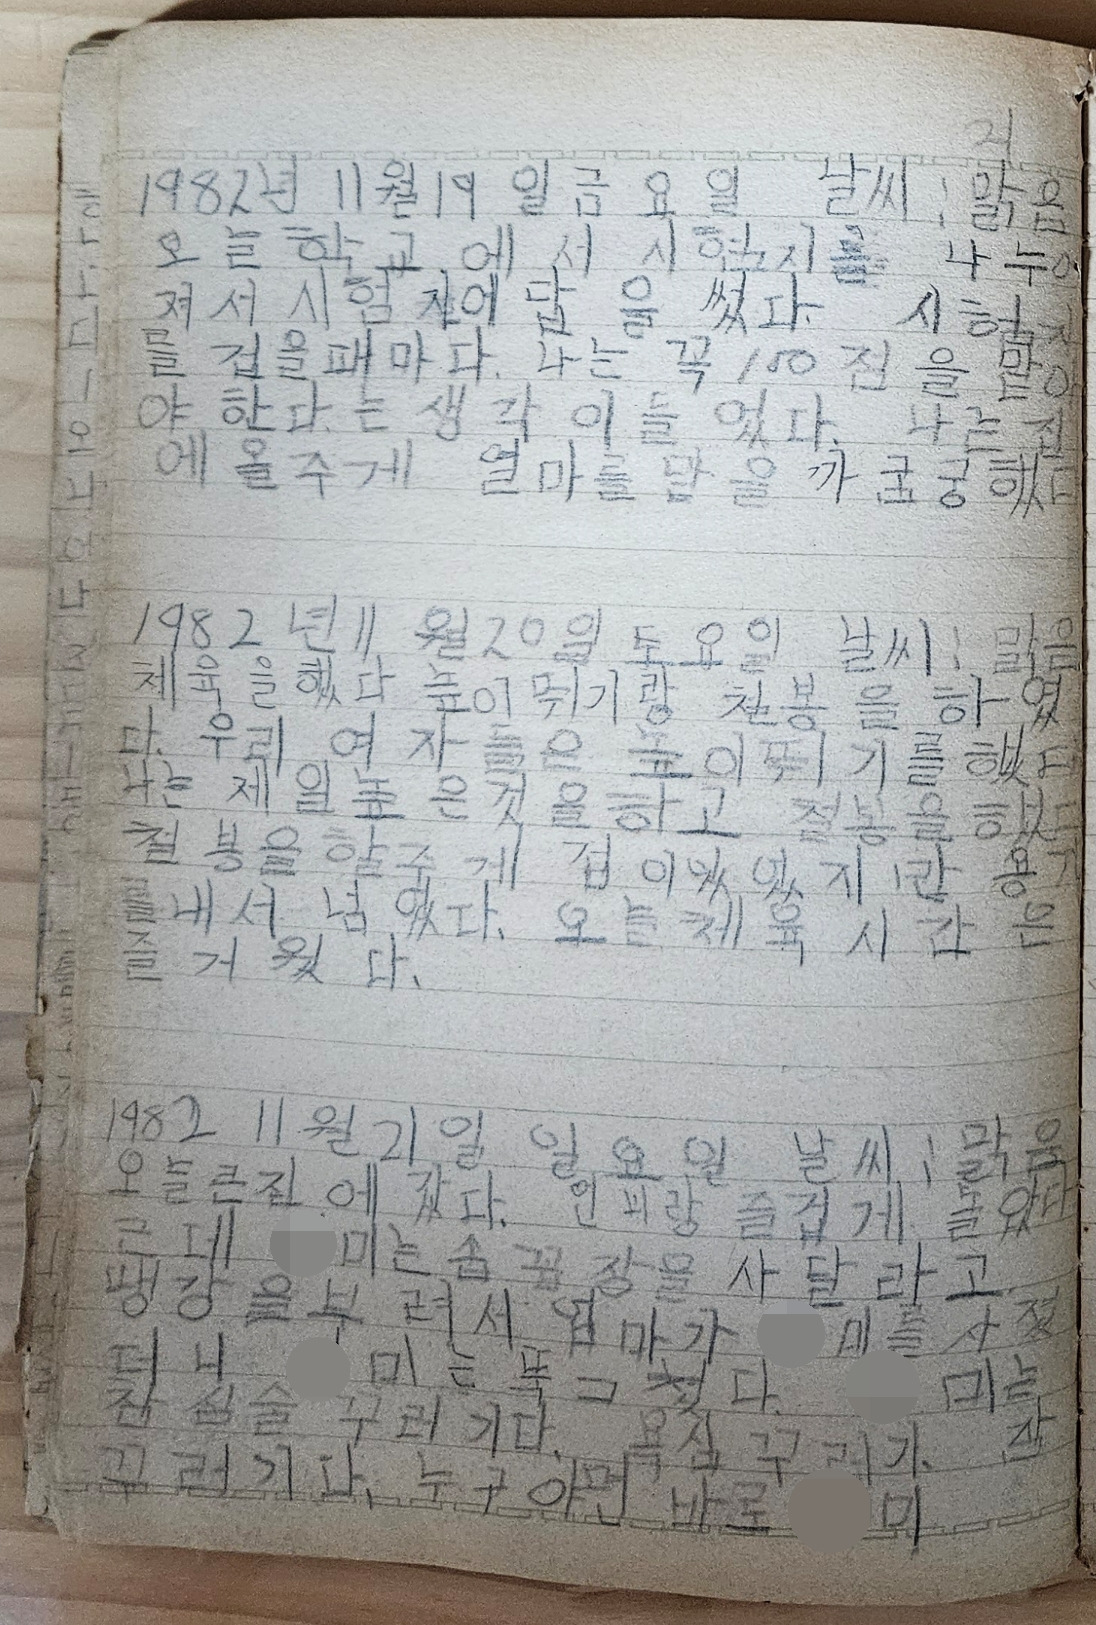 1982년 11월19 일금 요 일 날씨; 맑음
오 늘 학교 에서 시험지를 나누어
져서 시험지에 답 을 썼다. 시험지
를 겁을패마다. 나는 꼭 100 점 을 맞아
야 한다.는 생 각 이들 었다. 나는 집
에 올주게 열마를 맞 을 까 굼궁했다
1982 년11 월20일 토요일 날씨; 맑음
체육을했다 높이뛰기랑 철봉을 하였
다. 우리 여 자 들은 높이뛰 기 를 했다
나는 제 일 높 은것을하고 철봉을 했다
철 봉을 할주 게 겁 이났 었 지 만 용기
를내서 넘 었다. 오늘체육 시 간 은
즐 거 웠 다.
1982 11월21일 일 요 일 날 씨; 맑음
오늘큰집 에 갔다. 언니랑 즐겁게 놀았다
근 데 미는 숨 꼽 장을 사 달 라고
땡강 을부 려서 엄마가 미를 사 줬
더 니 미 는 뚝그쳤다. 미는
잠 심술 꾸러 기다. 욕심 꾸러기. 잠
꾸 러기 다. 누구 야면 바로 미